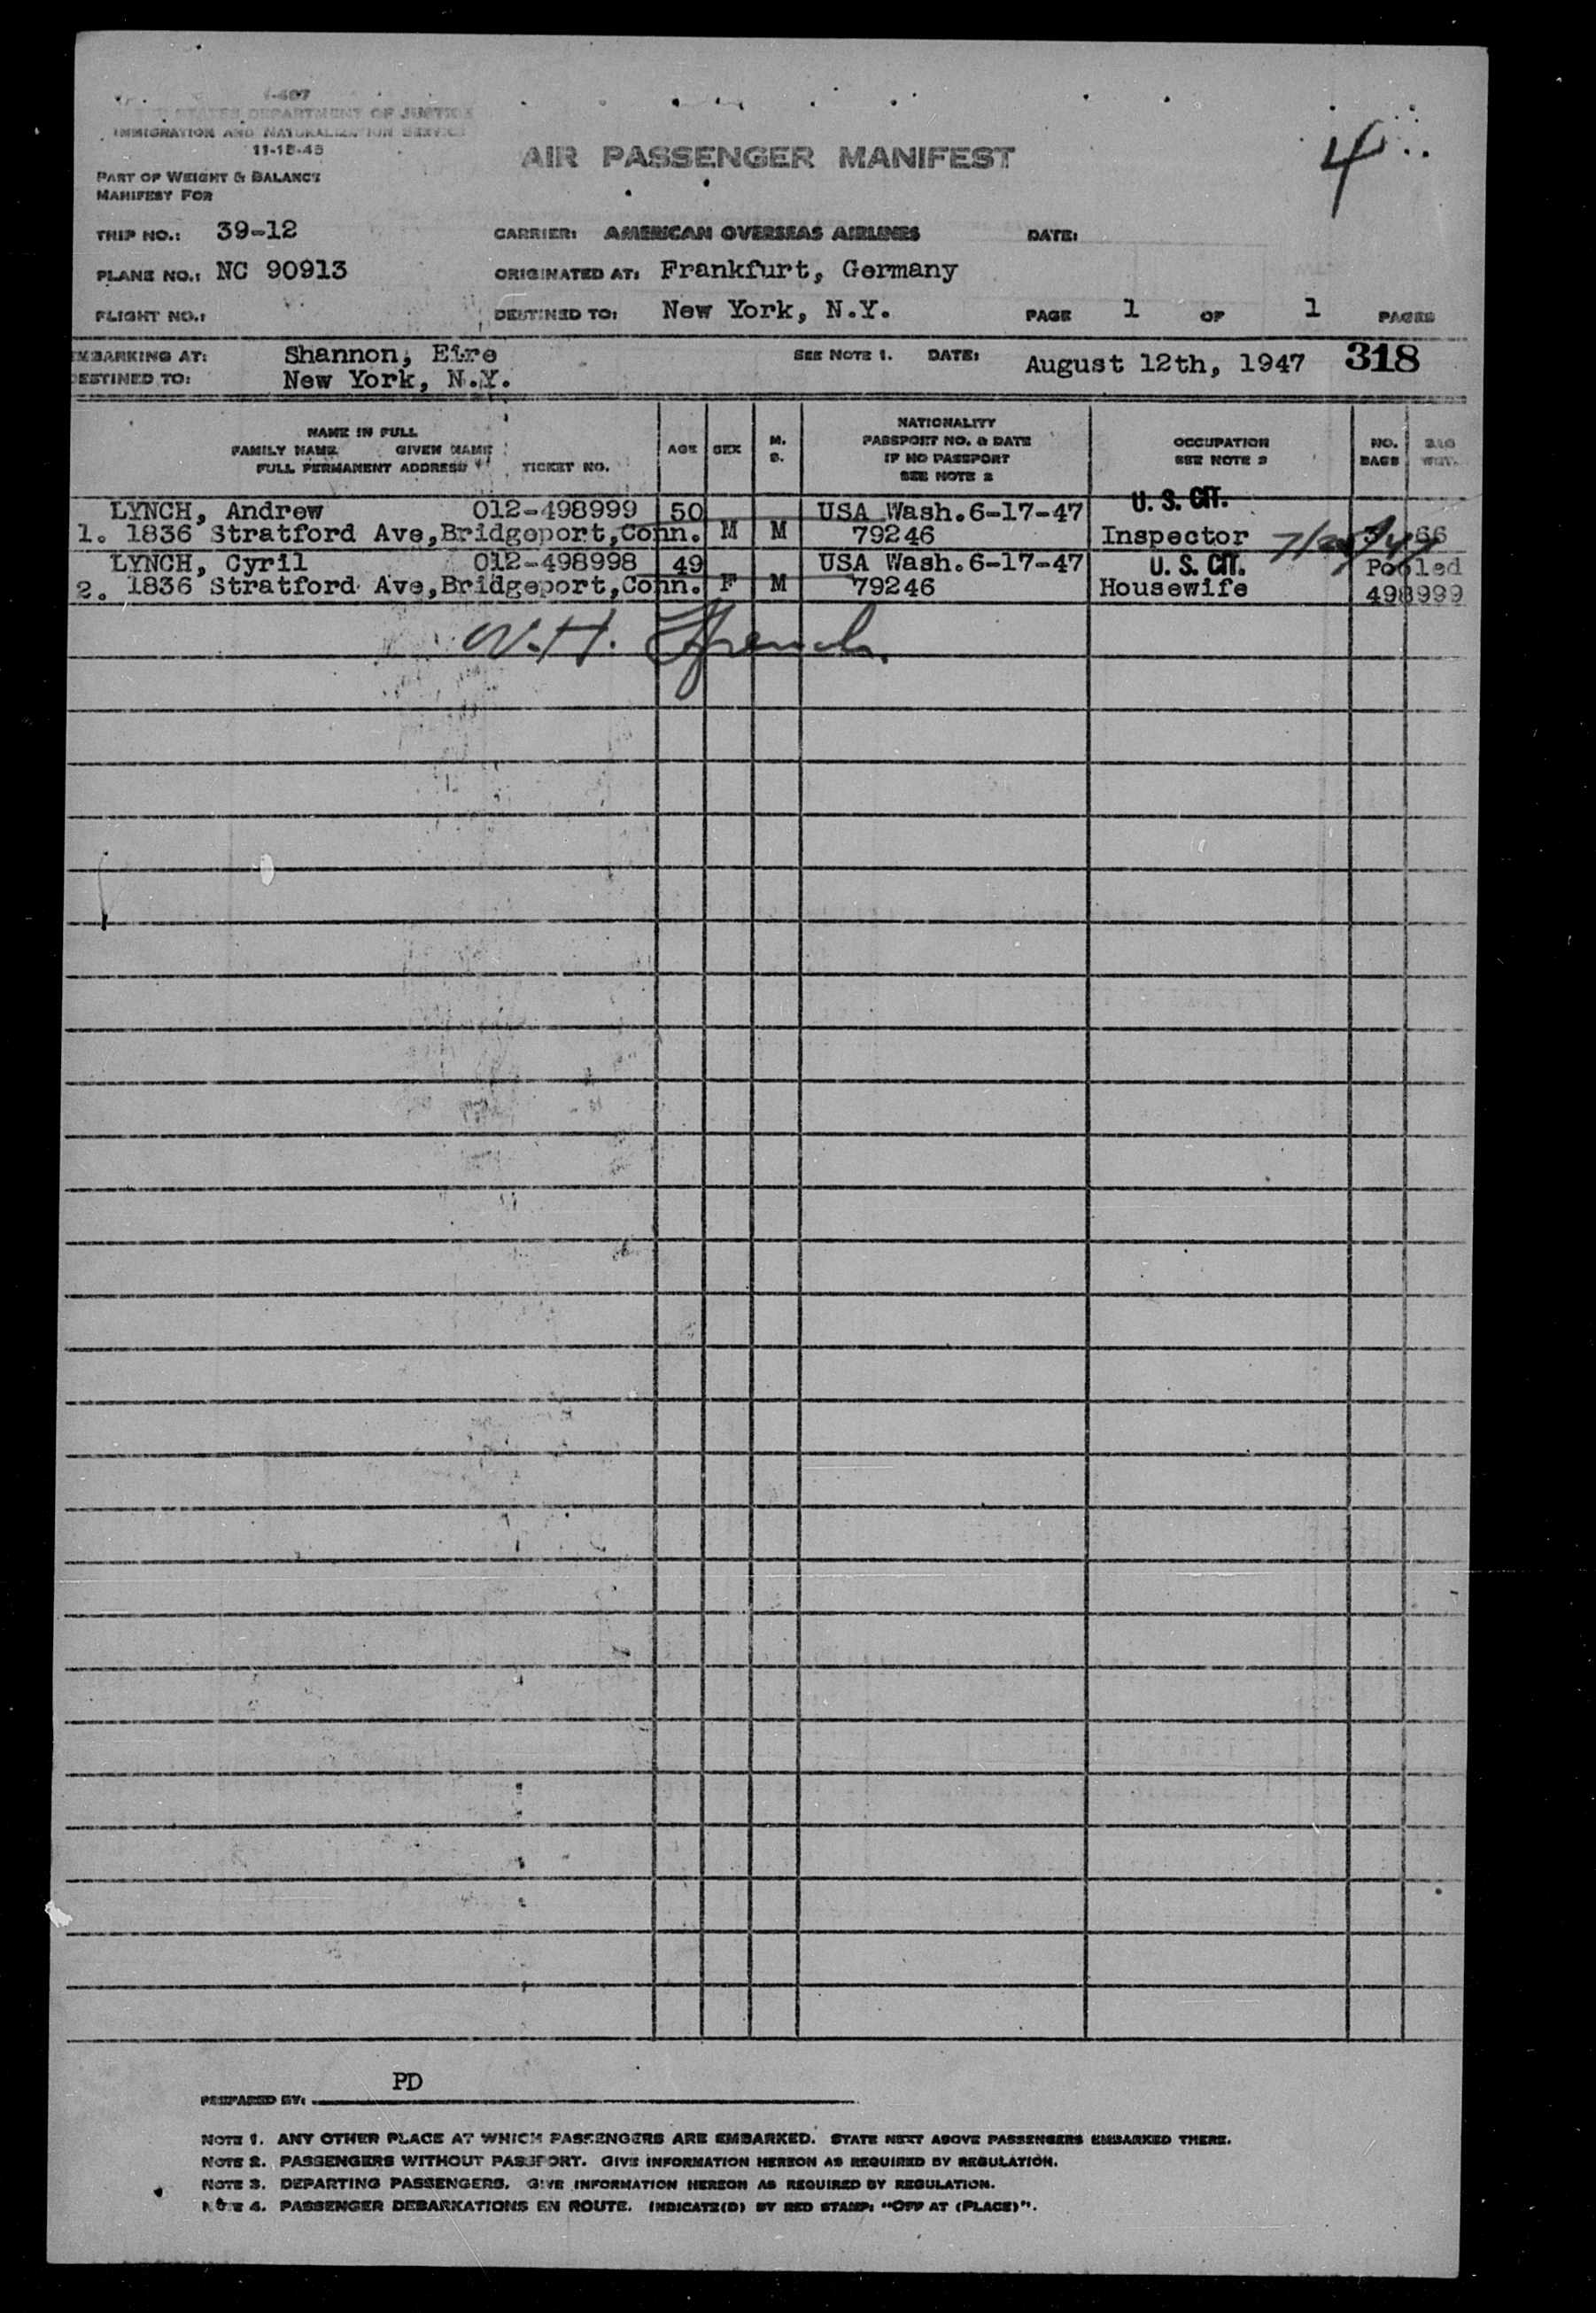 I-407
STATES DEPARTMENT OF JUSTICE
IMMIGRATION AND NATURALIZATION SERVICE
11-15-45
AIR PASSENGER MANIFEST
4
PART OF WEIGHT & BALANCE
MANIFEST FOR
TRIP NO.: 39-12 CARRIER: AMERICAN OVERSEAS AIRLINES DATE:
PLANE NO.: NC 90913 ORIGINATED AT: Frankfurt, Germany
FLIGHT NO.: DESTINED TO: New York, N.Y. PAGE 1 OF 1 PAGES
EMBARKING AT: Shannon, Eire SEE NOTE 1. DATE: August 12th, 1947 318
DESTINED TO: New York, N.Y.
NAME IN FULL
FAMILY NAME GIVEN NAME
FULL PERMANENT ADDRESS TICKET NO.
AGE SEX M. S.
NATIONALITY
PASSPORT NO. & DATE
IF NO PASSPORT
SEE NOTE 2
OCCUPATION
SEE NOTE 3
NO. BAGS
BAG WGT.
LYNCH, Andrew 012-498999 50 USA Wash.6-17-47 U. S. CIT.
1. 1836 Stratford Ave,Bridgeport,Conn. M M 79246 Inspector 3 66
LYNCH, Cyril 012-498998 49 USA Wash.6-17-47 U. S. CIT. Pooled
2. 1836 Stratford Ave,Bridgeport,Conn. F M 79246 Housewife 498999
W. H. French
PREPARED BY: PD
NOTE 1. ANY OTHER PLACE AT WHICH PASSENGERS ARE EMBARKED. STATE NEXT ABOVE PASSENGERS EMBARKED THERE.
NOTE 2. PASSENGERS WITHOUT PASSPORT. GIVE INFORMATION HEREON AS REQUIRED BY REGULATION.
NOTE 3. DEPARTING PASSENGERS. GIVE INFORMATION HEREON AS REQUIRED BY REGULATION.
NOTE 4. PASSENGER DEBARKATIONS EN ROUTE. INDICATE(D) BY RED STAMP: "OFF AT (PLACE)".